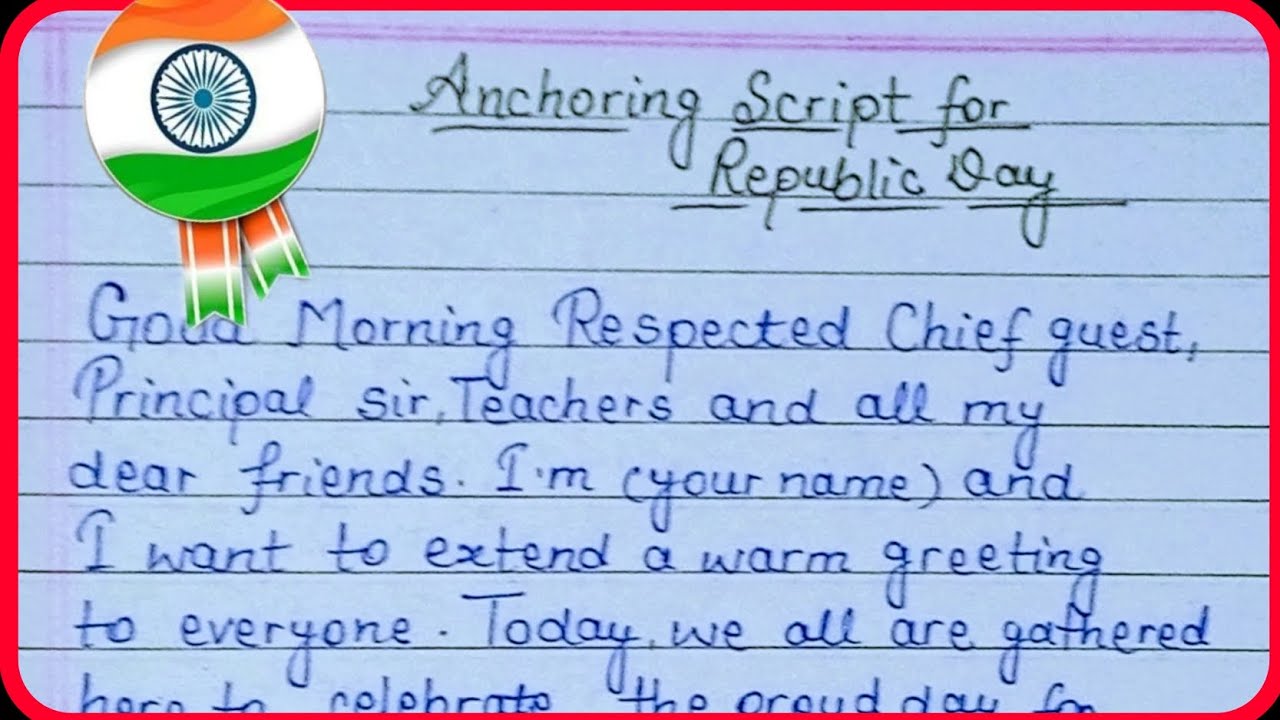 Anchoring Script for
Republic Day
Good Morning Respected Chief guest,
Principal sir, Teachers and all my
dear friends. I'm (your name) and
I want to extend a warm greeting
to everyone. Today, we all are gathered
here to celebrate the proud day for